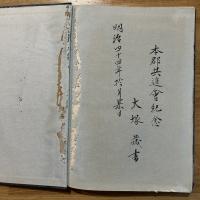 本郡共進會紀念
大塚藏書
明治四十四年於日